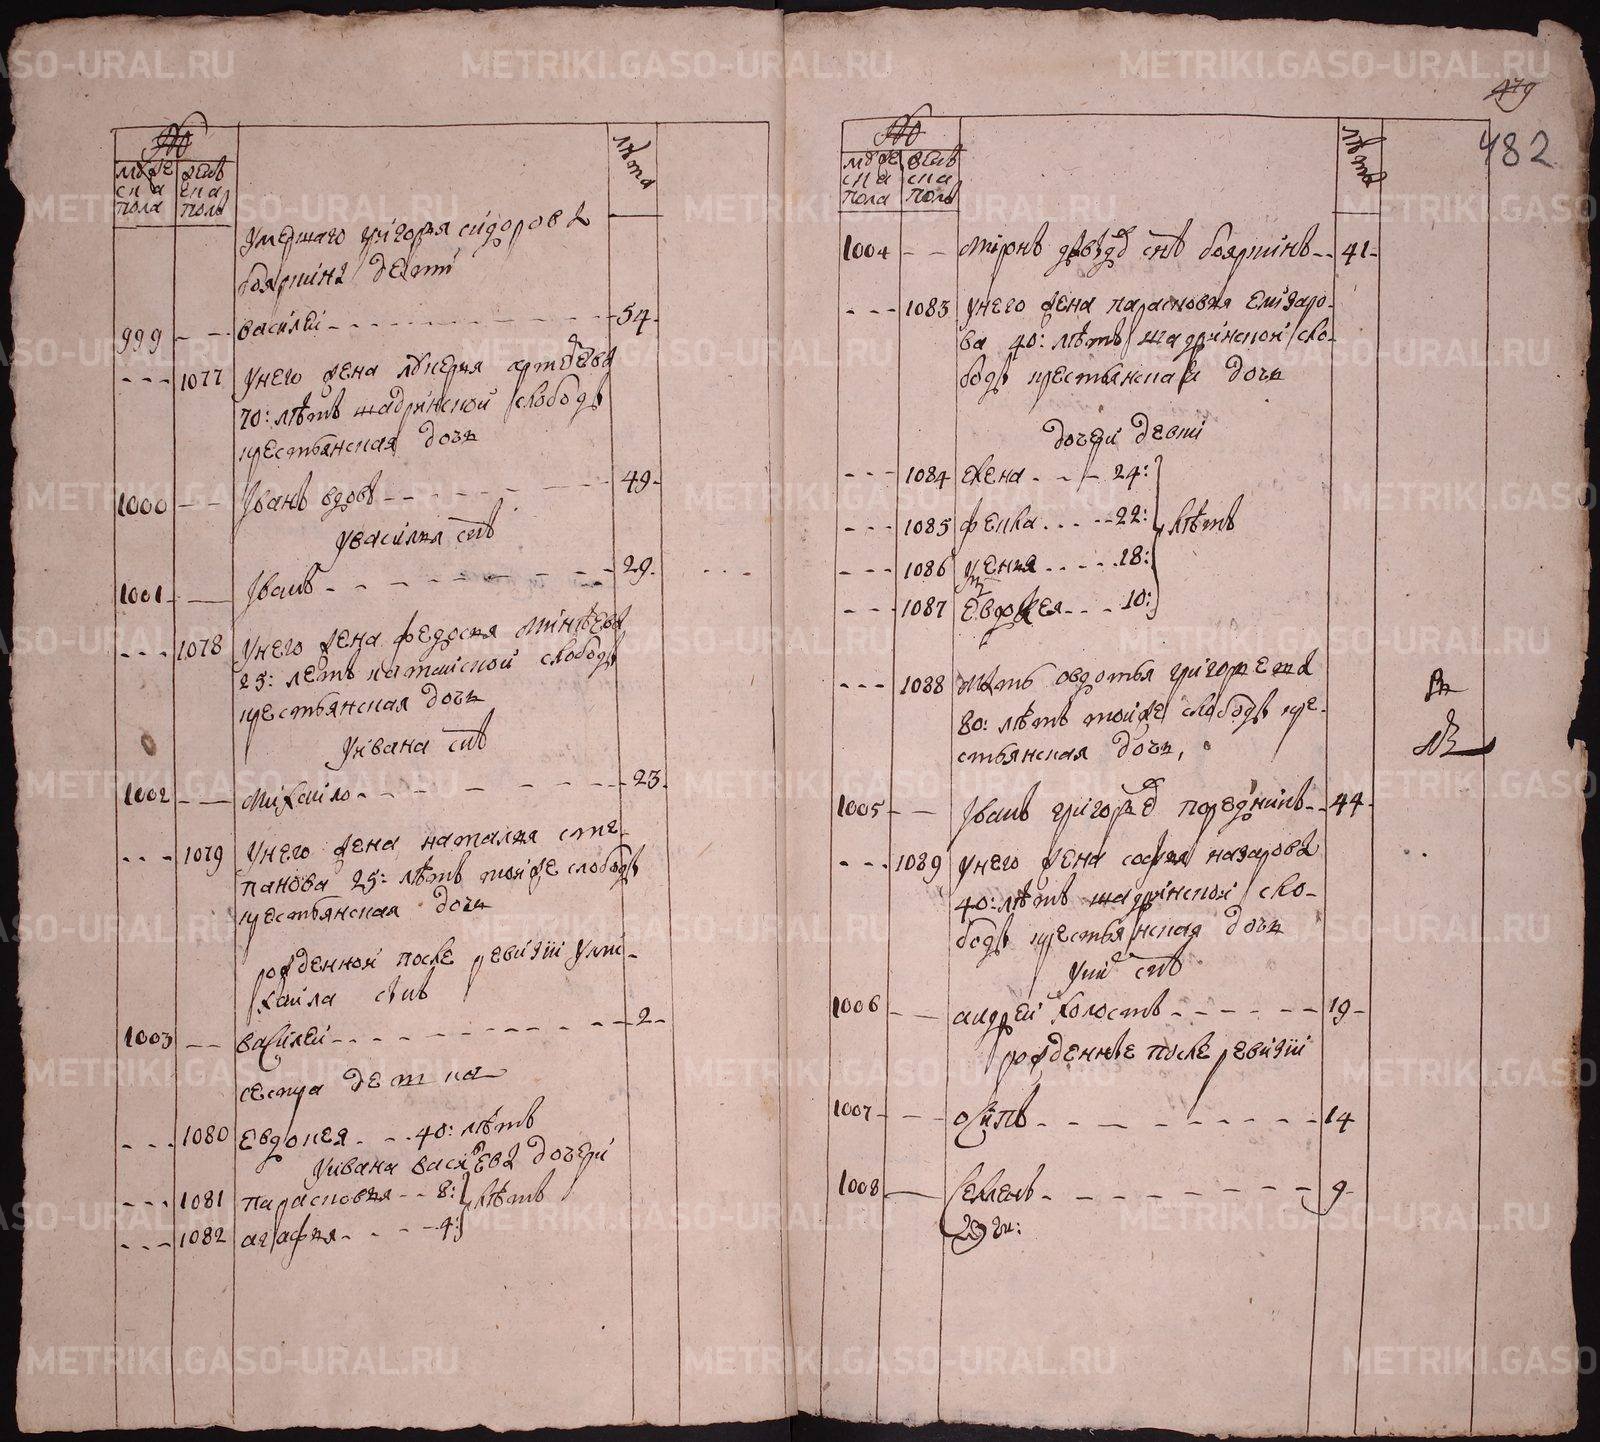 №
мужеска пола
женска полу
лѣта
умершаго григоря сидорова
бояркина дети
999 василей 54
1077 у него жена лукеря
70: лѣтъ шадринской слободы
крестьянская дочь
1000 Iванъ вдовъ 49
у василия сынъ
1001 Iванъ 29
1078 у него жена федосия минѣева
25: летъ катайской слободы
крестьянская дочь
у ивана сынъ
1002 михайло 23
1079 у него жена наталия сте-
панова 25: лѣтъ той же слободы
крестьянская дочь
рожденной после ревизии у ми-
хаила сынъ
1003 василей 2
сестра девка
1080 евдокея 40: лѣтъ
у ивана васильева дочери
1081 парасковия 8: лѣтъ
1082 агафия 4:
479
482
№
мужеска пола
женска полу
лѣта
1004 миронъ давыдовъ снъ бояркинъ 41
1083 у него жена парасковия елизаро-
ва 40: лѣтъ шадринской сло-
боды крестьянская дочь
дочери девки
1084 елена 24:
1085 фекла 22: лѣтъ
1086 ксения 18:
1087 евдокея 10:
1088 мать овдотья григорьева
80: лѣтъ той же слободы кре-
стьянская дочь
1005 Iванъ григорьевъ 44
1089 у него жена софия назарова
40: лѣтъ шадринской сло-
боды крестьянская дочь
у них сынъ
1006 андрей холостъ 19
рожденные после ревизии
1007 осипъ 14
1008 семенъ 9
METRIKI.GASO-URAL.RU